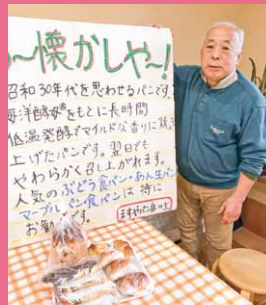 〜懐かしや〜!
昭和30年代を思わせるパンです。
海洋酵母をもとに長時間
低温発酵でマイルドな香りに焼き
上げたパンです。翌日でも
やわらかく召し上がれます。
人気のぶどう食パン・あん生パン
マーブルパン食パンは特に
お勧めです。